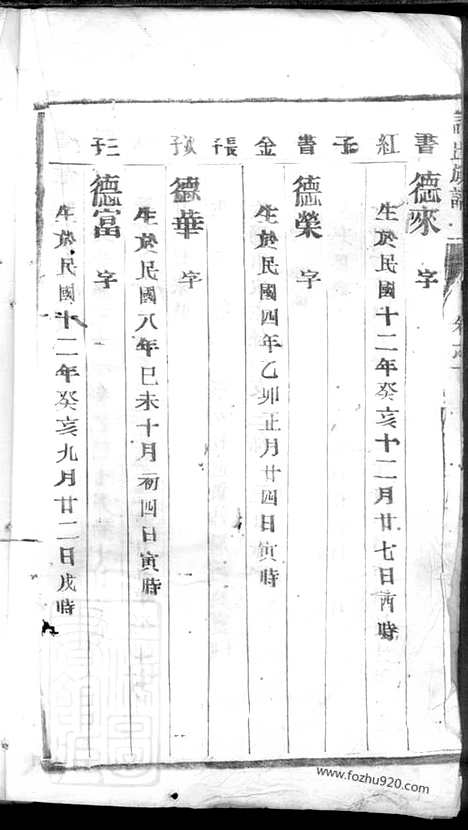 書 德來 字
紅 生於民國十二年癸亥十二月廿七日酉時
子
書 德榮 字
金 生於民國四年乙卯正月廿四日寅時
長
次子 德華 字
生於民國八年己未十月初四日寅時
三子 德富 字
生於民國十二年癸亥九月廿二日戌時
www.fozhu920.com